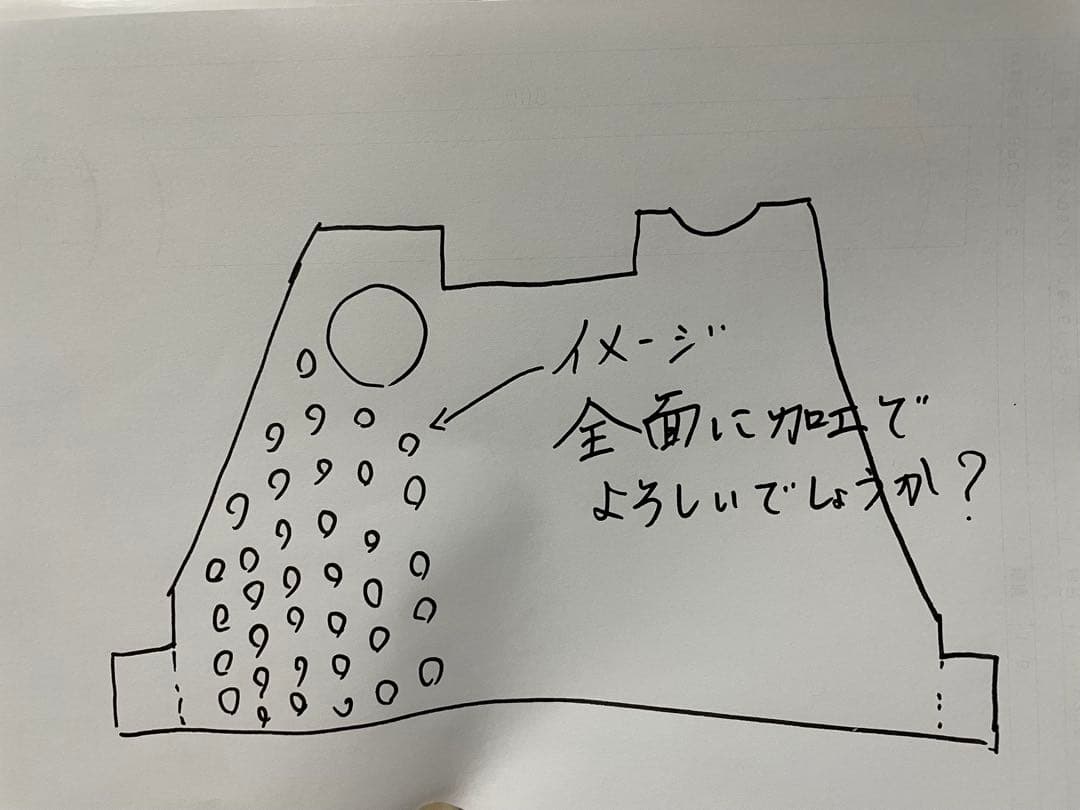 イメージ
全面に加工で
よろしいでしょうか?